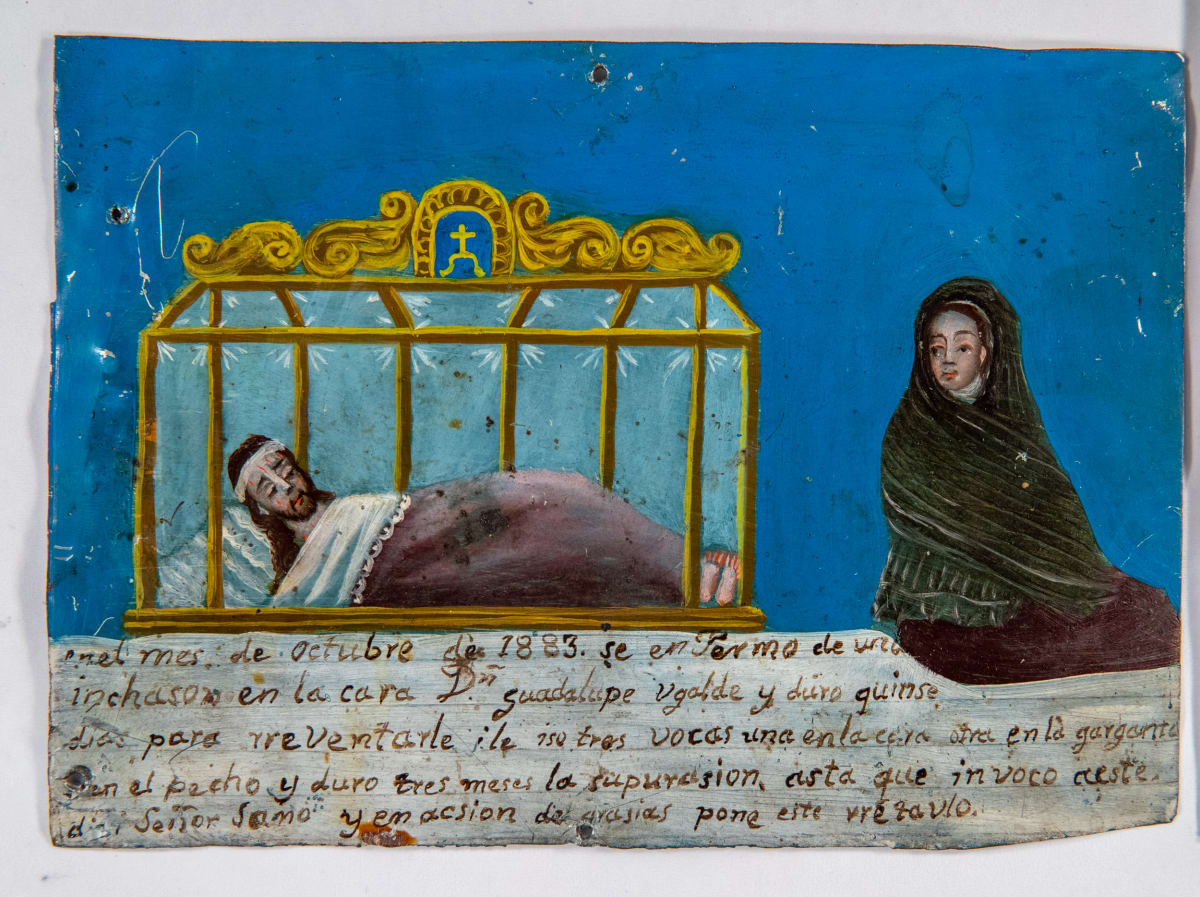 enel mes. de octubre de 1883. se en Fermo de una
inchason en la cara Dñ guadalupe vgalde y duro quinse
dias para rreventarle ile iso tres vocas una en la cara otra en la garganta
en el pecho y duro tres meses la supurasion, asta que invoco aeste.
Señor Sanô y en acsion de grasias pone este rretavlo.